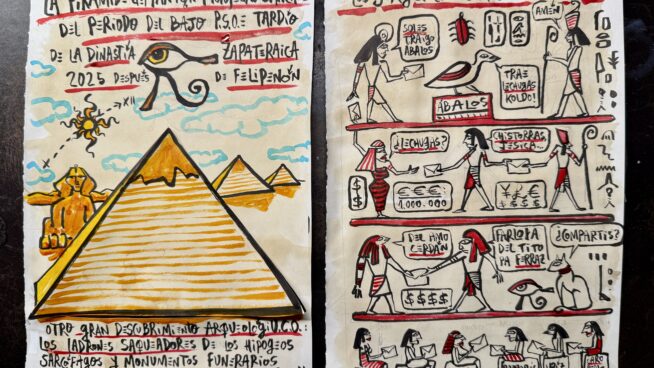 LA PIRÁMIDE DE
DEL PERIODO DEL BAJO P.S.O.E TARDÍO
DE LA DINASTÍA ZAPATERAICA
2025 DESPUÉS DE FELIPENÓN
OTRO GRAN DESCUBRIMIENTO ARQUEOLÓGI.U.C.O.:
LOS LADRONES SAQUEADORES DE LOS HIPOGEOS
SARCÓFAGOS Y MONUMENTOS FUNERARIOS
¡SOLES TRAIGO ÁBALOS
AMÉN!
TRAE LECHUGAS KOLDO!
ÁBALOS
¿LECHUGAS?
CHISTORRAS, JÉSICA.
$ $
€ € €
1.000.000
¥ £ €
$ $ $ $
DEL AMO CERDÁN
FARLOPA DEL TITO PA FERRAZ
¿COMPARTÍS?
$ $ $ $